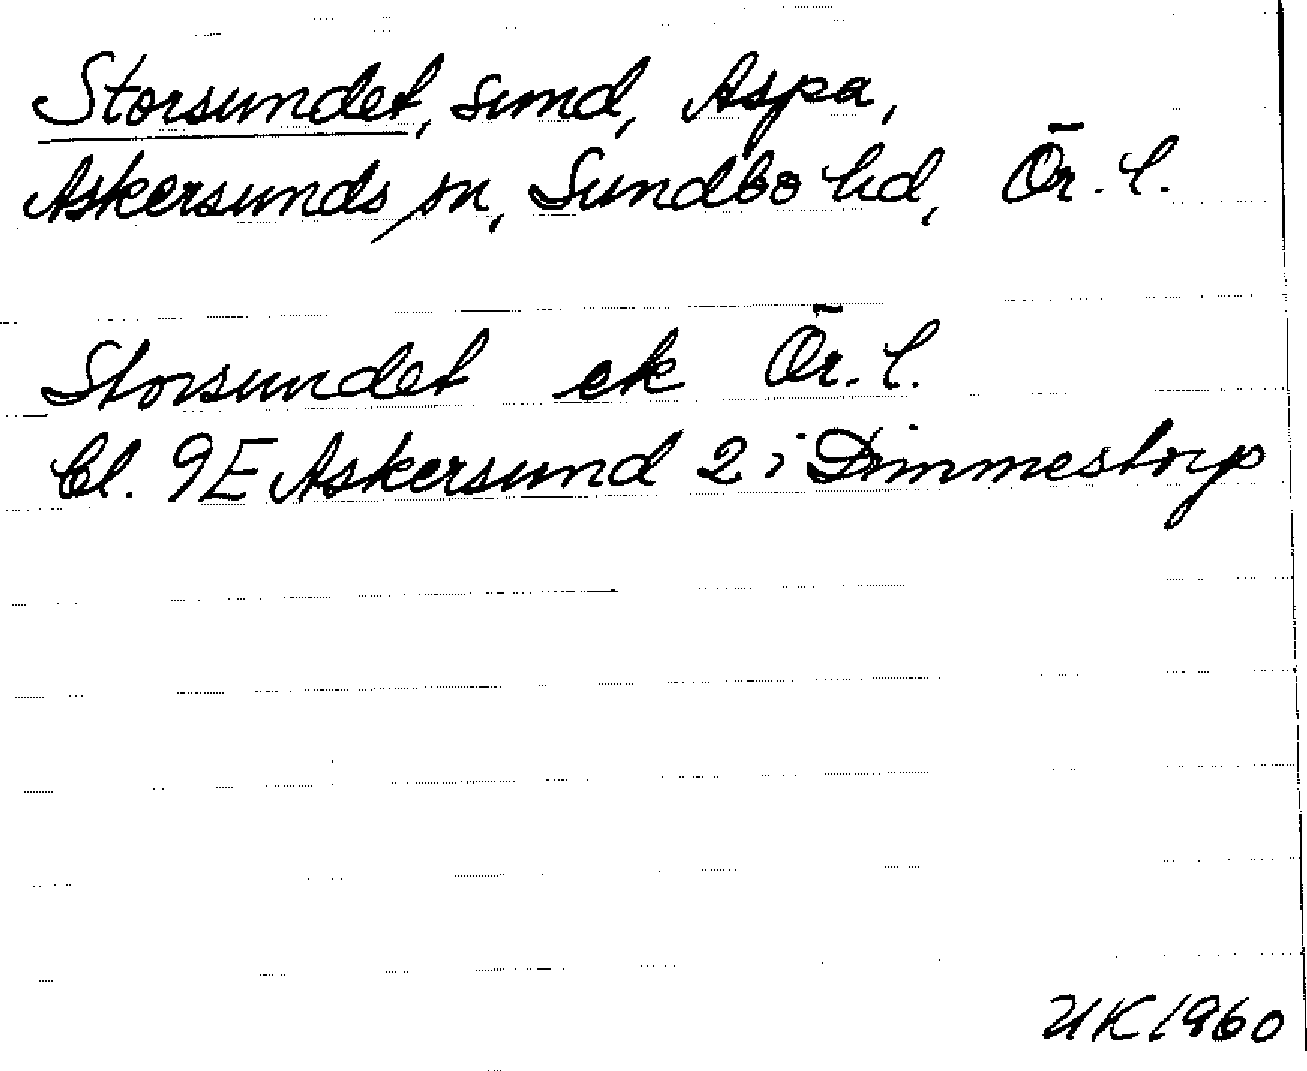 Storsundet, sund, Aspa,
Askersunds sn, Sundbo hd, Ör. l.
Storsundet ek Ör. l.
Bl. 9E Askersund 2 i Dimmestorp
UK 1960